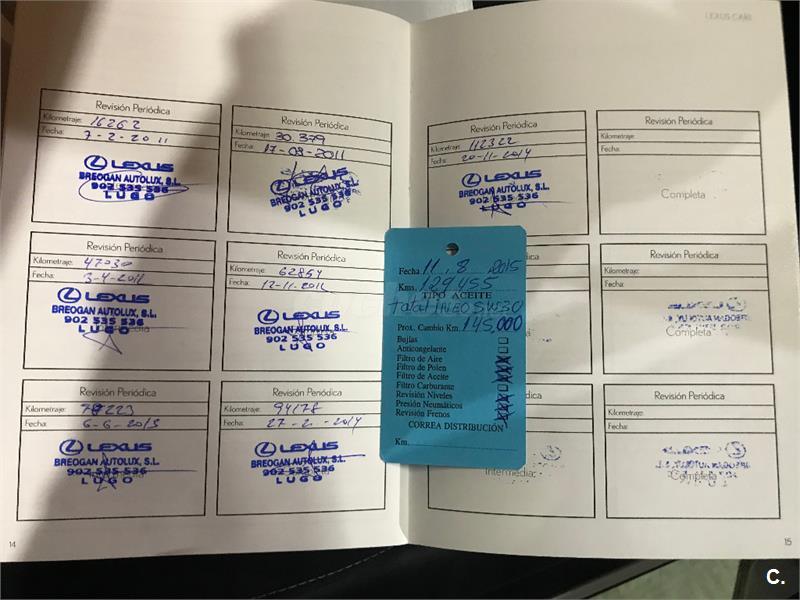 LEXUS CARE
Revisión Periódica
Kilometraje: 16262
Fecha: 7-2-2011
LEXUS
BREOGAN AUTOLUX, S.L.
902 535 536
LUGO
Revisión Periódica
Kilometraje: 30.379
Fecha: 17-08-2011
LEXUS
BREOGAN AUTOLUX, S.L.
902 535 536
LUGO
Revisión Periódica
Kilometraje: 47030
Fecha:
LEXUS
BREOGAN AUTOLUX, S.L.
902 535 536
LUGO
Revisión Periódica
Kilometraje: 62854
Fecha:
LEXUS
BREOGAN AUTOLUX, S.L.
902 535 536
LUGO
Revisión Periódica
Kilometraje:
Fecha: 6-6-2013
LEXUS
BREOGAN AUTOLUX, S.L.
902 535 536
LUGO
Revisión Periódica
Kilometraje: 94178
Fecha: 27-2-2014
LEXUS
BREOGAN AUTOLUX, S.L.
902 535 536
LUGO
14
Revisión Periódica
Kilometraje: 112322
Fecha: 20-11-2014
LEXUS
BREOGAN AUTOLUX, S.L.
902 535 536
LUGO
Revisión Periódica
Kilometraje:
Fecha:
Completa
Fecha 11.8.2015
Kms. 129455
TIPO ACEITE
total INEO 5W30
Prox. Cambio Km. 145,000
Bujías
Anticongelante
Filtro de Aire
Filtro de Polen
Filtro de Aceite
Filtro Carburante
Revisión Niveles
Presión Neumáticos
Revisión Frenos
CORREA DISTRIBUCIÓN
Km.
Revisión Periódica
Kilometraje:
Fecha:
Intermedia
Revisión Periódica
Kilometraje:
Fecha:
Completa
15
C.